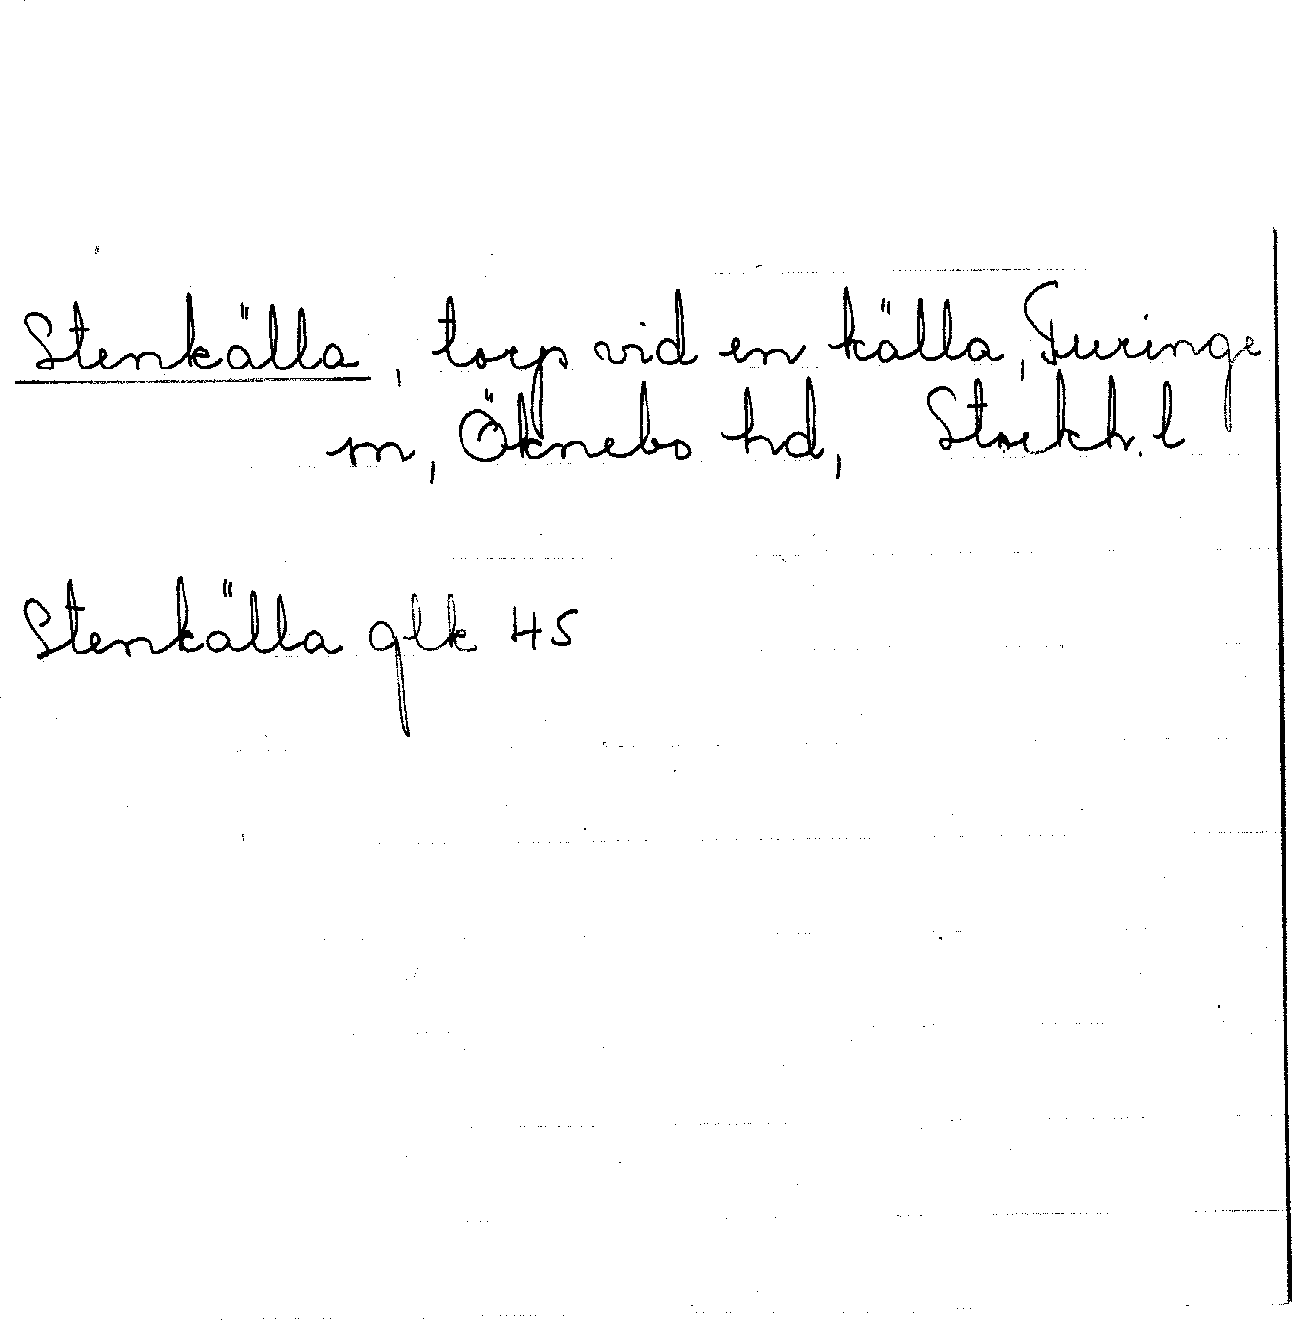 Stenkälla, torp vid en källa, Turinge
sn, Öknebo hd, Stockh. l
Stenkälla glk 45